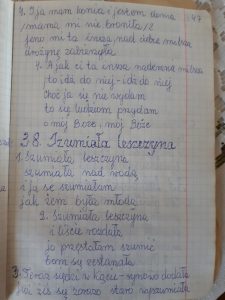 4. I ja mam konia i jestem doma 47
/mama mi nie broniła/2
jeno mi ta inszo nad ciebie milsza
drużyne zabrzuyła
4. A jak ci ta insza nademna milsza
to idź do niej - idź do niej
Choć ja się nie wydam
to się ludziom przydam
o mój Boże, mój Boże
38. Szumiała leszczyna
1. Szumiała leszczyna
szumiała nad wodą
i ja se szumiałam
jak żem była młodą
2. Szumiała leszczyna
i liście rozdała
ja przestałam szumić
bom się zestarała
3. Teraz siędzi w kącie - synowo dodała
coś się zaroz staro naszumiała